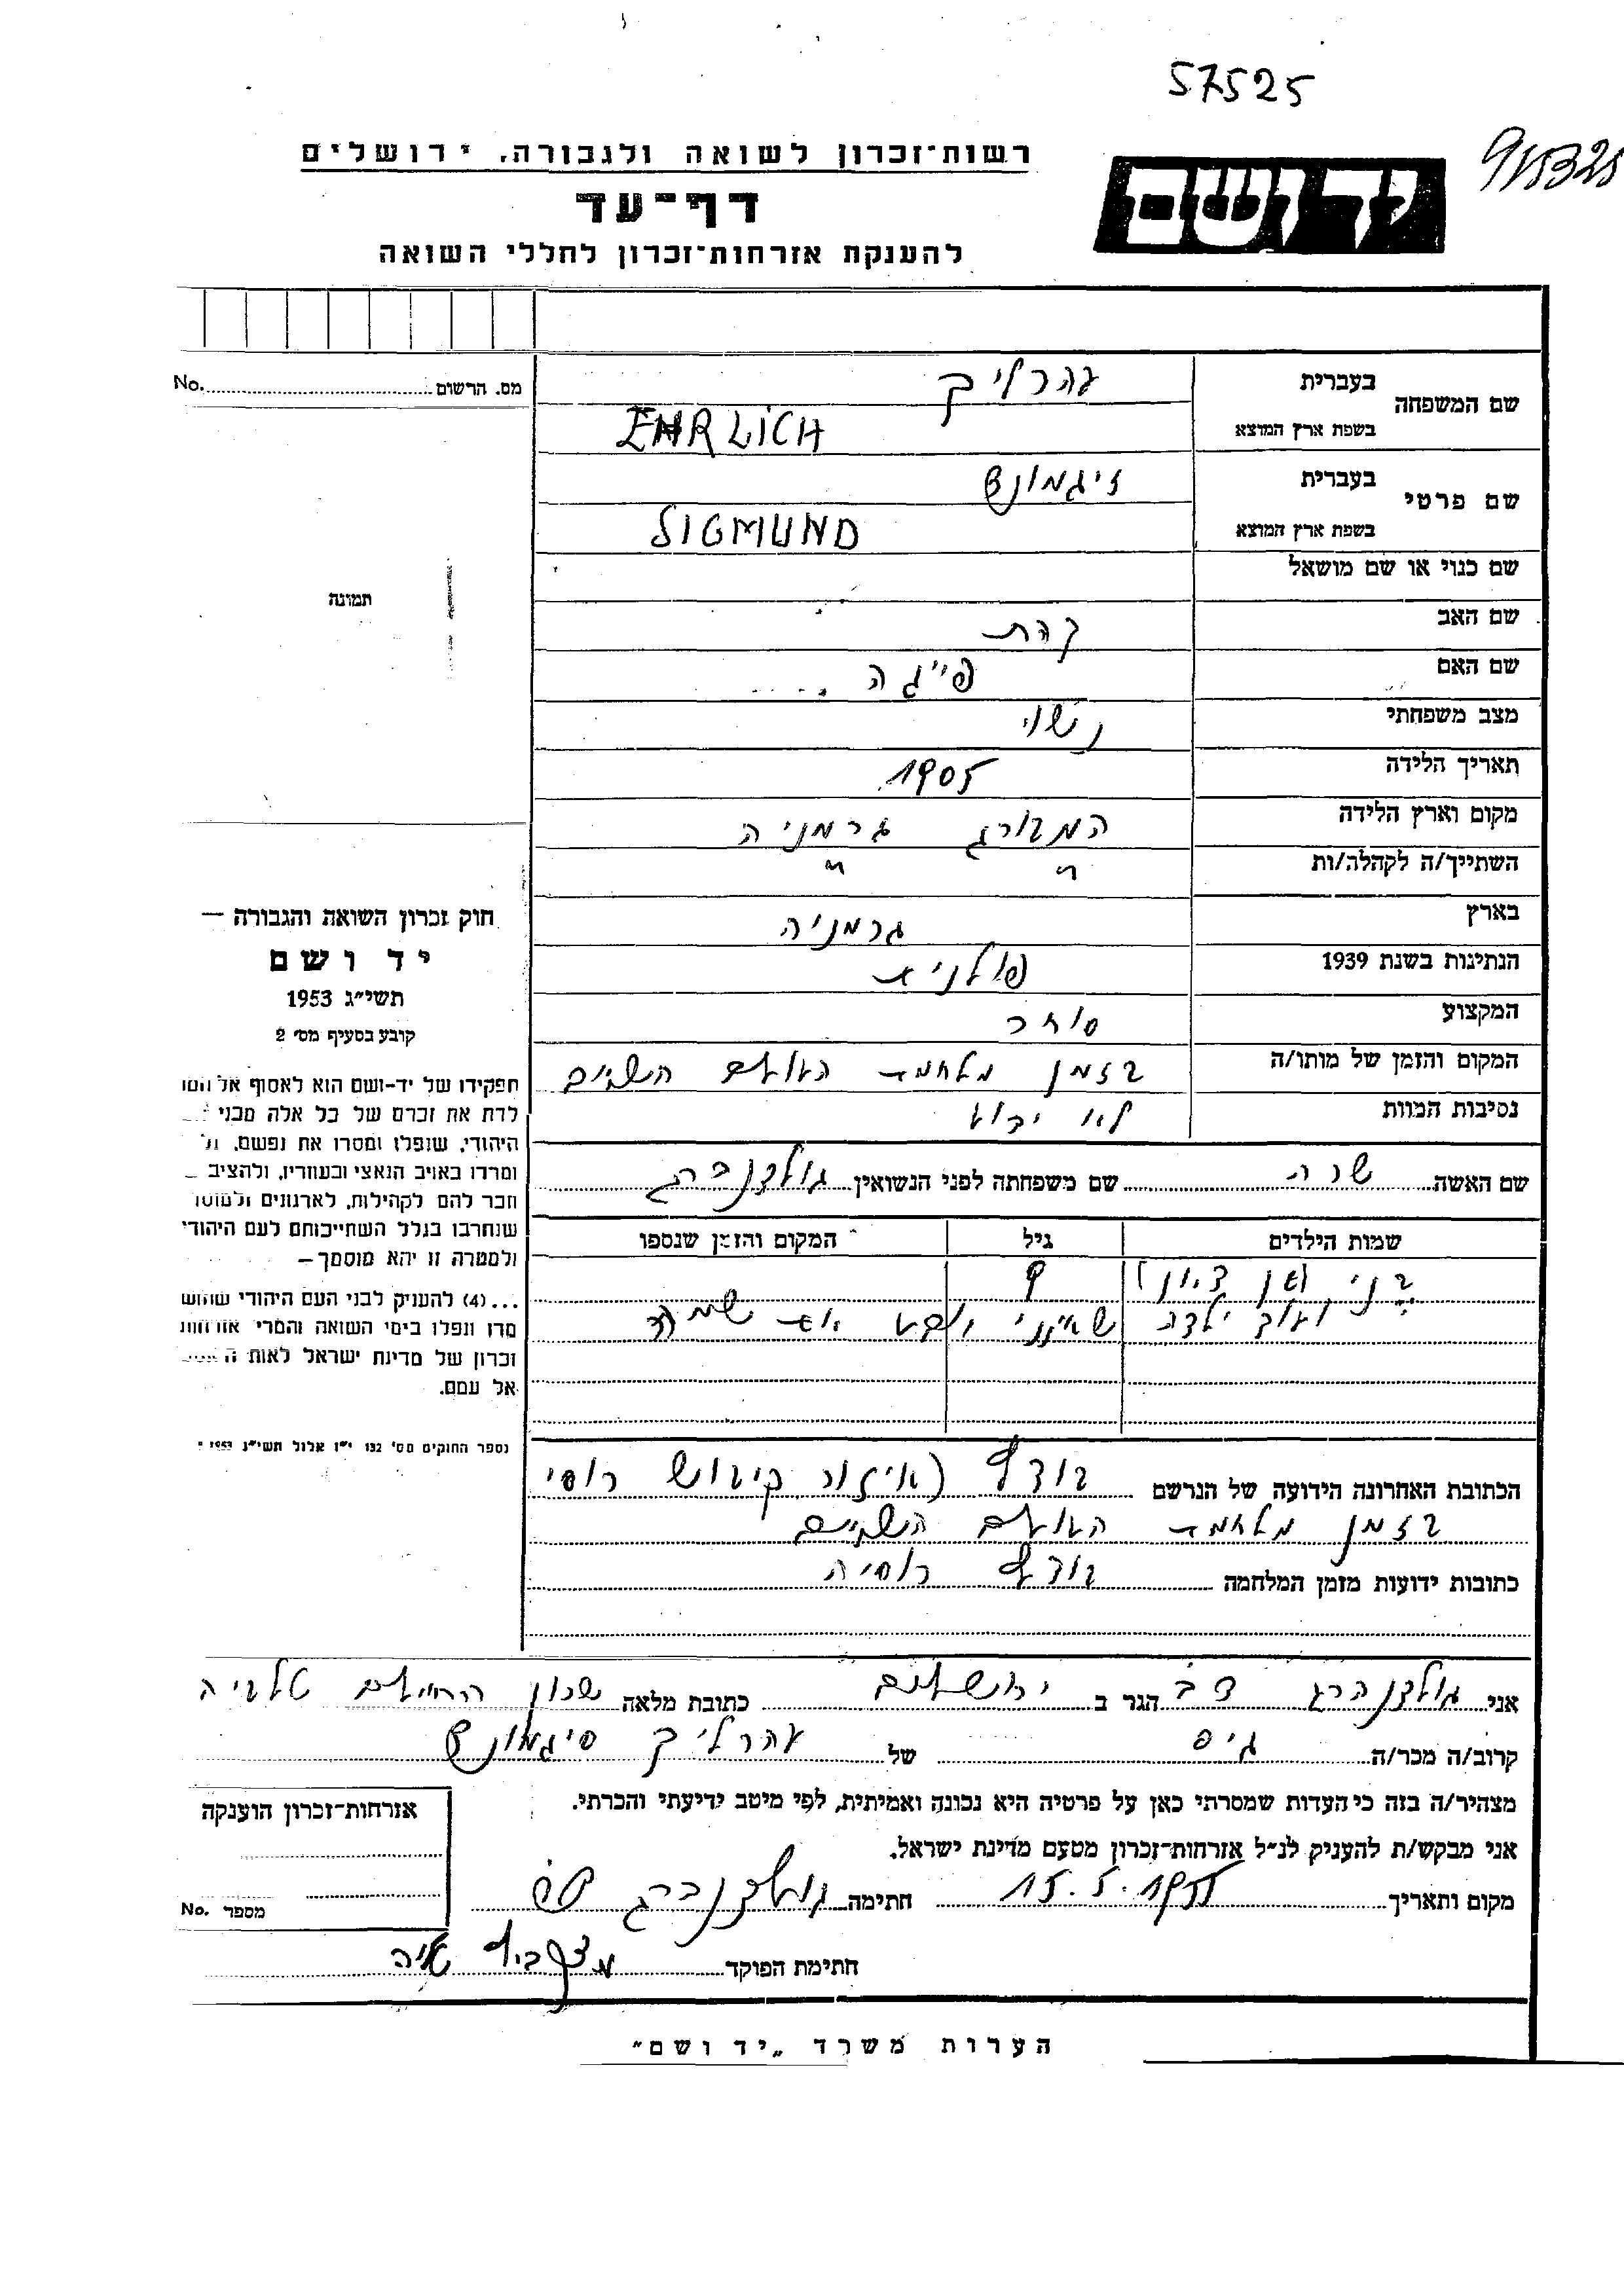 57525
רשות־זכרון לשואה ולגבורה, ירושלים
יד ושם
דף־עד
להענקת אזרחות־זכרון לחללי השואה
No. מס. הרשום
שם המשפחה
בעברית עהרליך
בשפת ארץ המוצא EHRLICH
שם פרטי
בעברית זיגמונד
בשפת ארץ המוצא SIGMUND
שם כנוי או שם מושאל
תמונה
שם האב קהת
שם האם פייגה
מצב משפחתי נשוי
תאריך הלידה 1905
מקום וארץ הלידה המבורג גרמניה
השתייך/ה לקהלה/ות " "
בארץ גרמניה
הנתינות בשנת 1939 פולנית
המקצוע סוחר
המקום והזמן של מותו/ה בזמן מלחמת העולם השניה
נסיבות המוות לא ידוע
חוק זכרון השואה והגבורה —
יד ושם
תשי״ג 1953
קובע בסעיף מס׳ 2
תפקידו של יד-ושם הוא לאסוף אל
לדת את זכרם של כל אלה מבני
היהודי, שנפלו ומסרו את נפשם,
ומרדו באויב הנאצי ובעוזריו, ולהציב
וזכר להם לקהילות, לארגונים ולמוסד
שנחרבו בגלל השתייכותם לעם היהודי
ולמטרה זו יהא מוסמך—
...(4) להענקי לבני העם היהודי
מדו ונפלו בימי השואה והמרי אזרחות
זכרון של מדינת ישראל לאות
אל עמם.
נספר החוקים מס׳ 132 י״ז אלול תשי״ג 1953
שם האשה שרה שם משפחתה לפני הנשואין גולדנברג
שמות הילדים גיל המקום והזמן שנספו
בני (בן ציון) 9
ועוד ילדה שאינני יודע את שמה
הכתובת האחרונה הידועה של הנרשם (איזור רוסי
בזמן מלחמת העולם השניה
כתובות ידועות מזמן המלחמה רוסיה
אני גולדנברג דב הגר ב ירושלים כתובת מלאה שכון טלביה
קרוב/ה מכר/ה גיס של עהרליך סיגמונד
מצהיר/ה בזה כי העדות שמסרתי כאן על פרטיה היא נכונה ואמיתית, לפי מיטב ידיעתי והכרתי.
אני מבקש/ת להעניק לנ״ל אזרחות־זכרון מטעם מדינת ישראל.
מקום ותאריך 15.5.1955 חתימה גולדנברג דב
חתימת הפוקד
אזרחות־זכרון הוענקה
No. מספר
הערות משרד „יד ושם״